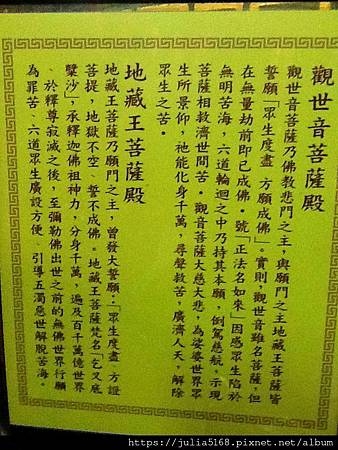 觀世音菩薩殿
觀世音菩薩乃佛教悲門之主，與願門之主地藏王菩薩皆
誓願「眾生度盡 方願成佛」。實則，觀世音雖名菩薩，但
在無量劫前即已成佛。號「正法名如來」因感眾生陷於
無明苦海，六道輪迴之中乃持其本願，倒駕慈航，示現
菩薩相救濟世間苦。觀音菩薩大慈大悲，為娑婆世界眾
生所景仰，祂能化身千萬，尋聲救苦，廣濟人天，解除
眾生之苦。
地藏王菩薩殿
地藏王菩薩乃願門之主，曾發大誓願：「眾生度盡、方證
菩提，地獄不空、誓不成佛。」地藏王菩薩梵名「乞叉底
檗沙」，承釋迦佛祖神力，分身千萬，遍及百千萬億世界
、於釋尊寂滅之後，至彌勒佛出世之前的無佛世界行願
為罪苦、六道眾生廣設方便、引導五濁惡世解脫苦海。
https://julia5168.pixnet.net/album